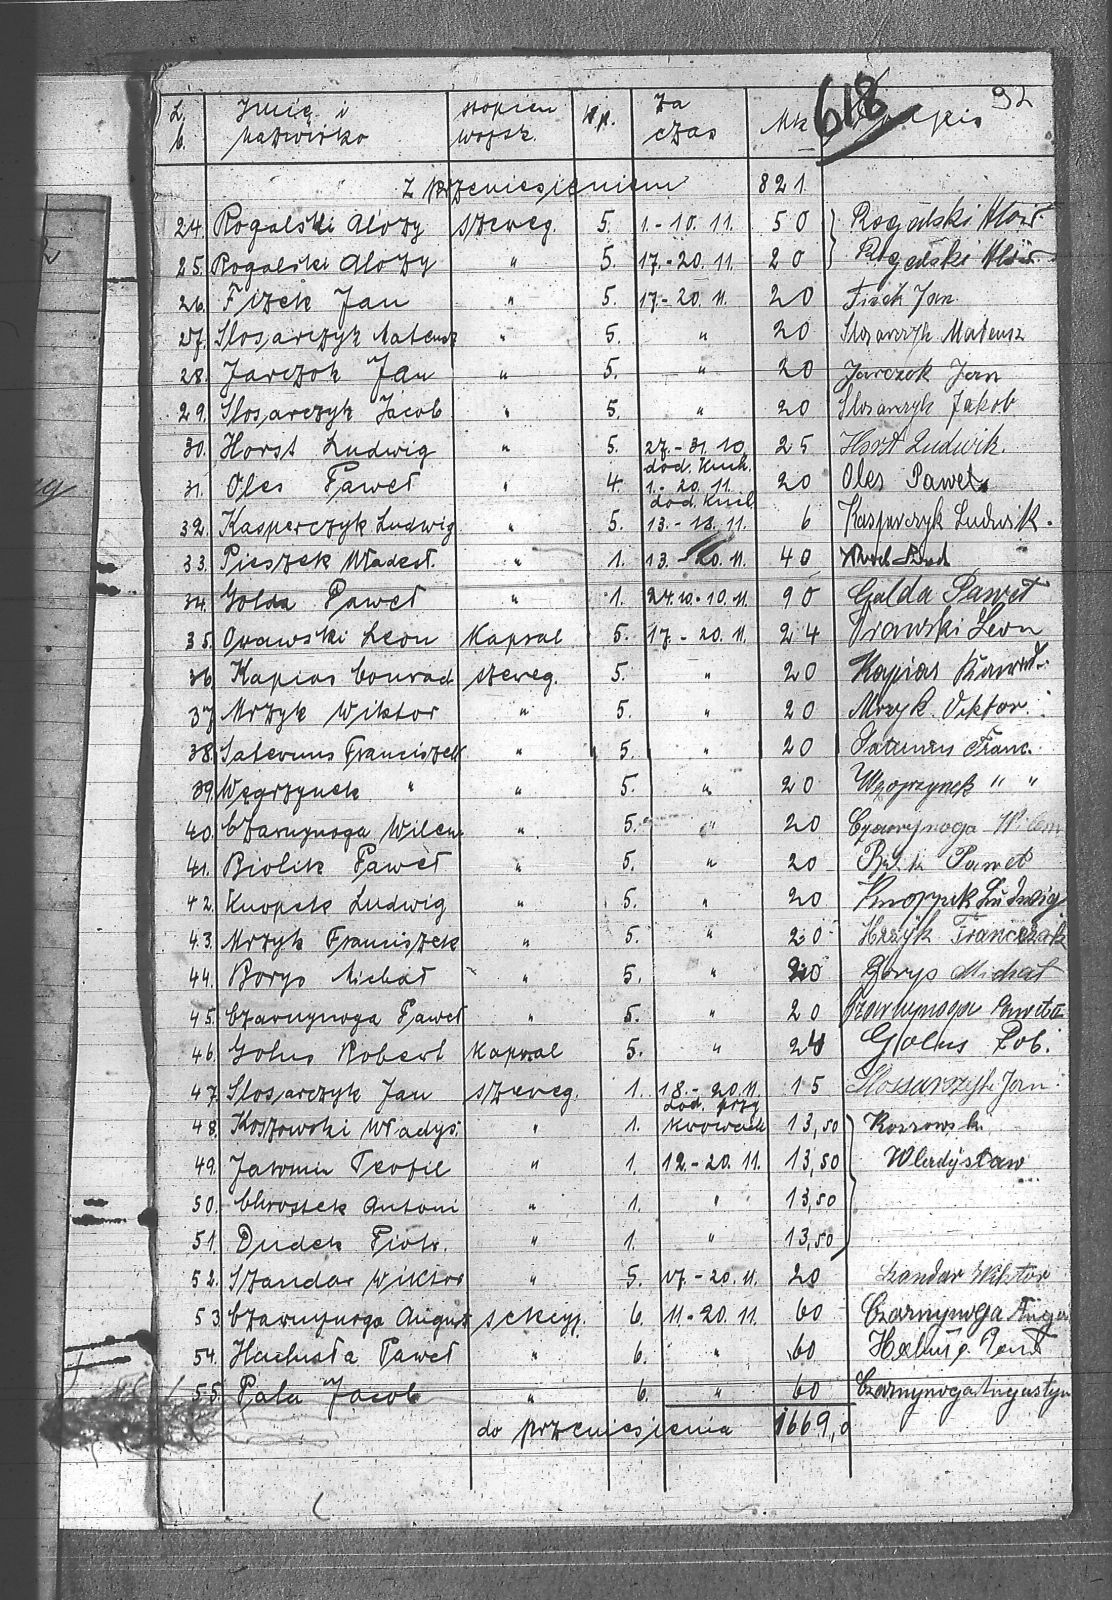 92
618
L. b. Imię i nazwisko stopień wojsk. Kp. Za czas Mk Podpis
Z przeniesieniem 821
24. Rogalski Alozy szereg. 5. 1.-10.11. 50 Rogalski
25. Rogalski Alozy " 5. 17.-20.11. 20
26. Fizek Jan " 5. 17.-20.11. 20 Jan
27. Slosarczyk Mateusz " 5. " 20 Slosarczyk Mateusz
28. Jarczok Jan " 5. " 20 Jarczok Jan
29. Slosarczyk Jacob " 5. " 20 Slosarczyk Jakob
30. Horst Ludwig " 5. 27.-31.10. 25 Horst Ludwik.
dod. kuch.
31. Oles Paweł " 4. 1.-20.11. 20 Oles Paweł
32. Kasperczyk Ludwig " 5. 13.-18.11. 6 Kasperczyk Ludwik.
33. Pieszek " 1. 13.-20.11. 40
34. Golda Paweł " 1. 24.10.-10.11. 90 Galda Paweł
35. Orawski Leon Kapral 5. 17.-20.11. 24 Orawski Leon
36. Kapias Conrad szereg. 5. " 20 Kapias
37. Mrzyk Wiktor " 5. " 20 Mrzyk Viktor
38. Franciszek " 5. " 20 Franc.
39. Węgrzynek " " 5. " 20 " "
40. Czarnynoga Wilem " 5. " 20 Czarnynoga Wilem
41. Biolik Paweł " 5. " 20 Paweł
42. Knopek Ludwig " 5. " 20 Ludwig
43. Mrzyk Franciszek " 5. " 20 Mrzyk
44. Borys Michał " 5. " 20 Borys Michał
45. Czarnynoga Paweł " 5. " 20 Czarnynoga
46. Golus Robert Kapral 5. " 24 Golus Rob.
47. Slosarczyk Jan szereg. 1. 18.-20.11. 15 Jan
dod. przy
48. Koszowski Władys. " 1. krowach 13,50
49. Jaromin Teofil " 1. 12.-20.11. 13,50 Władysław
50. Chrostek Antoni " 1. " 13,50
51. Dudek Piotr. " 1. " 13,50
52. Szandar Wiktor " 5. 17.-20.11. 20 Szandar Wiktor
53. Czarnynoga August 6. 11.-20.11. 60 Czarnynoga
54. Paweł " 6. " 60
55. Pala Jacob " 6. " 60 Czarnynoga Augustyn
do przeniesienia 1669,0